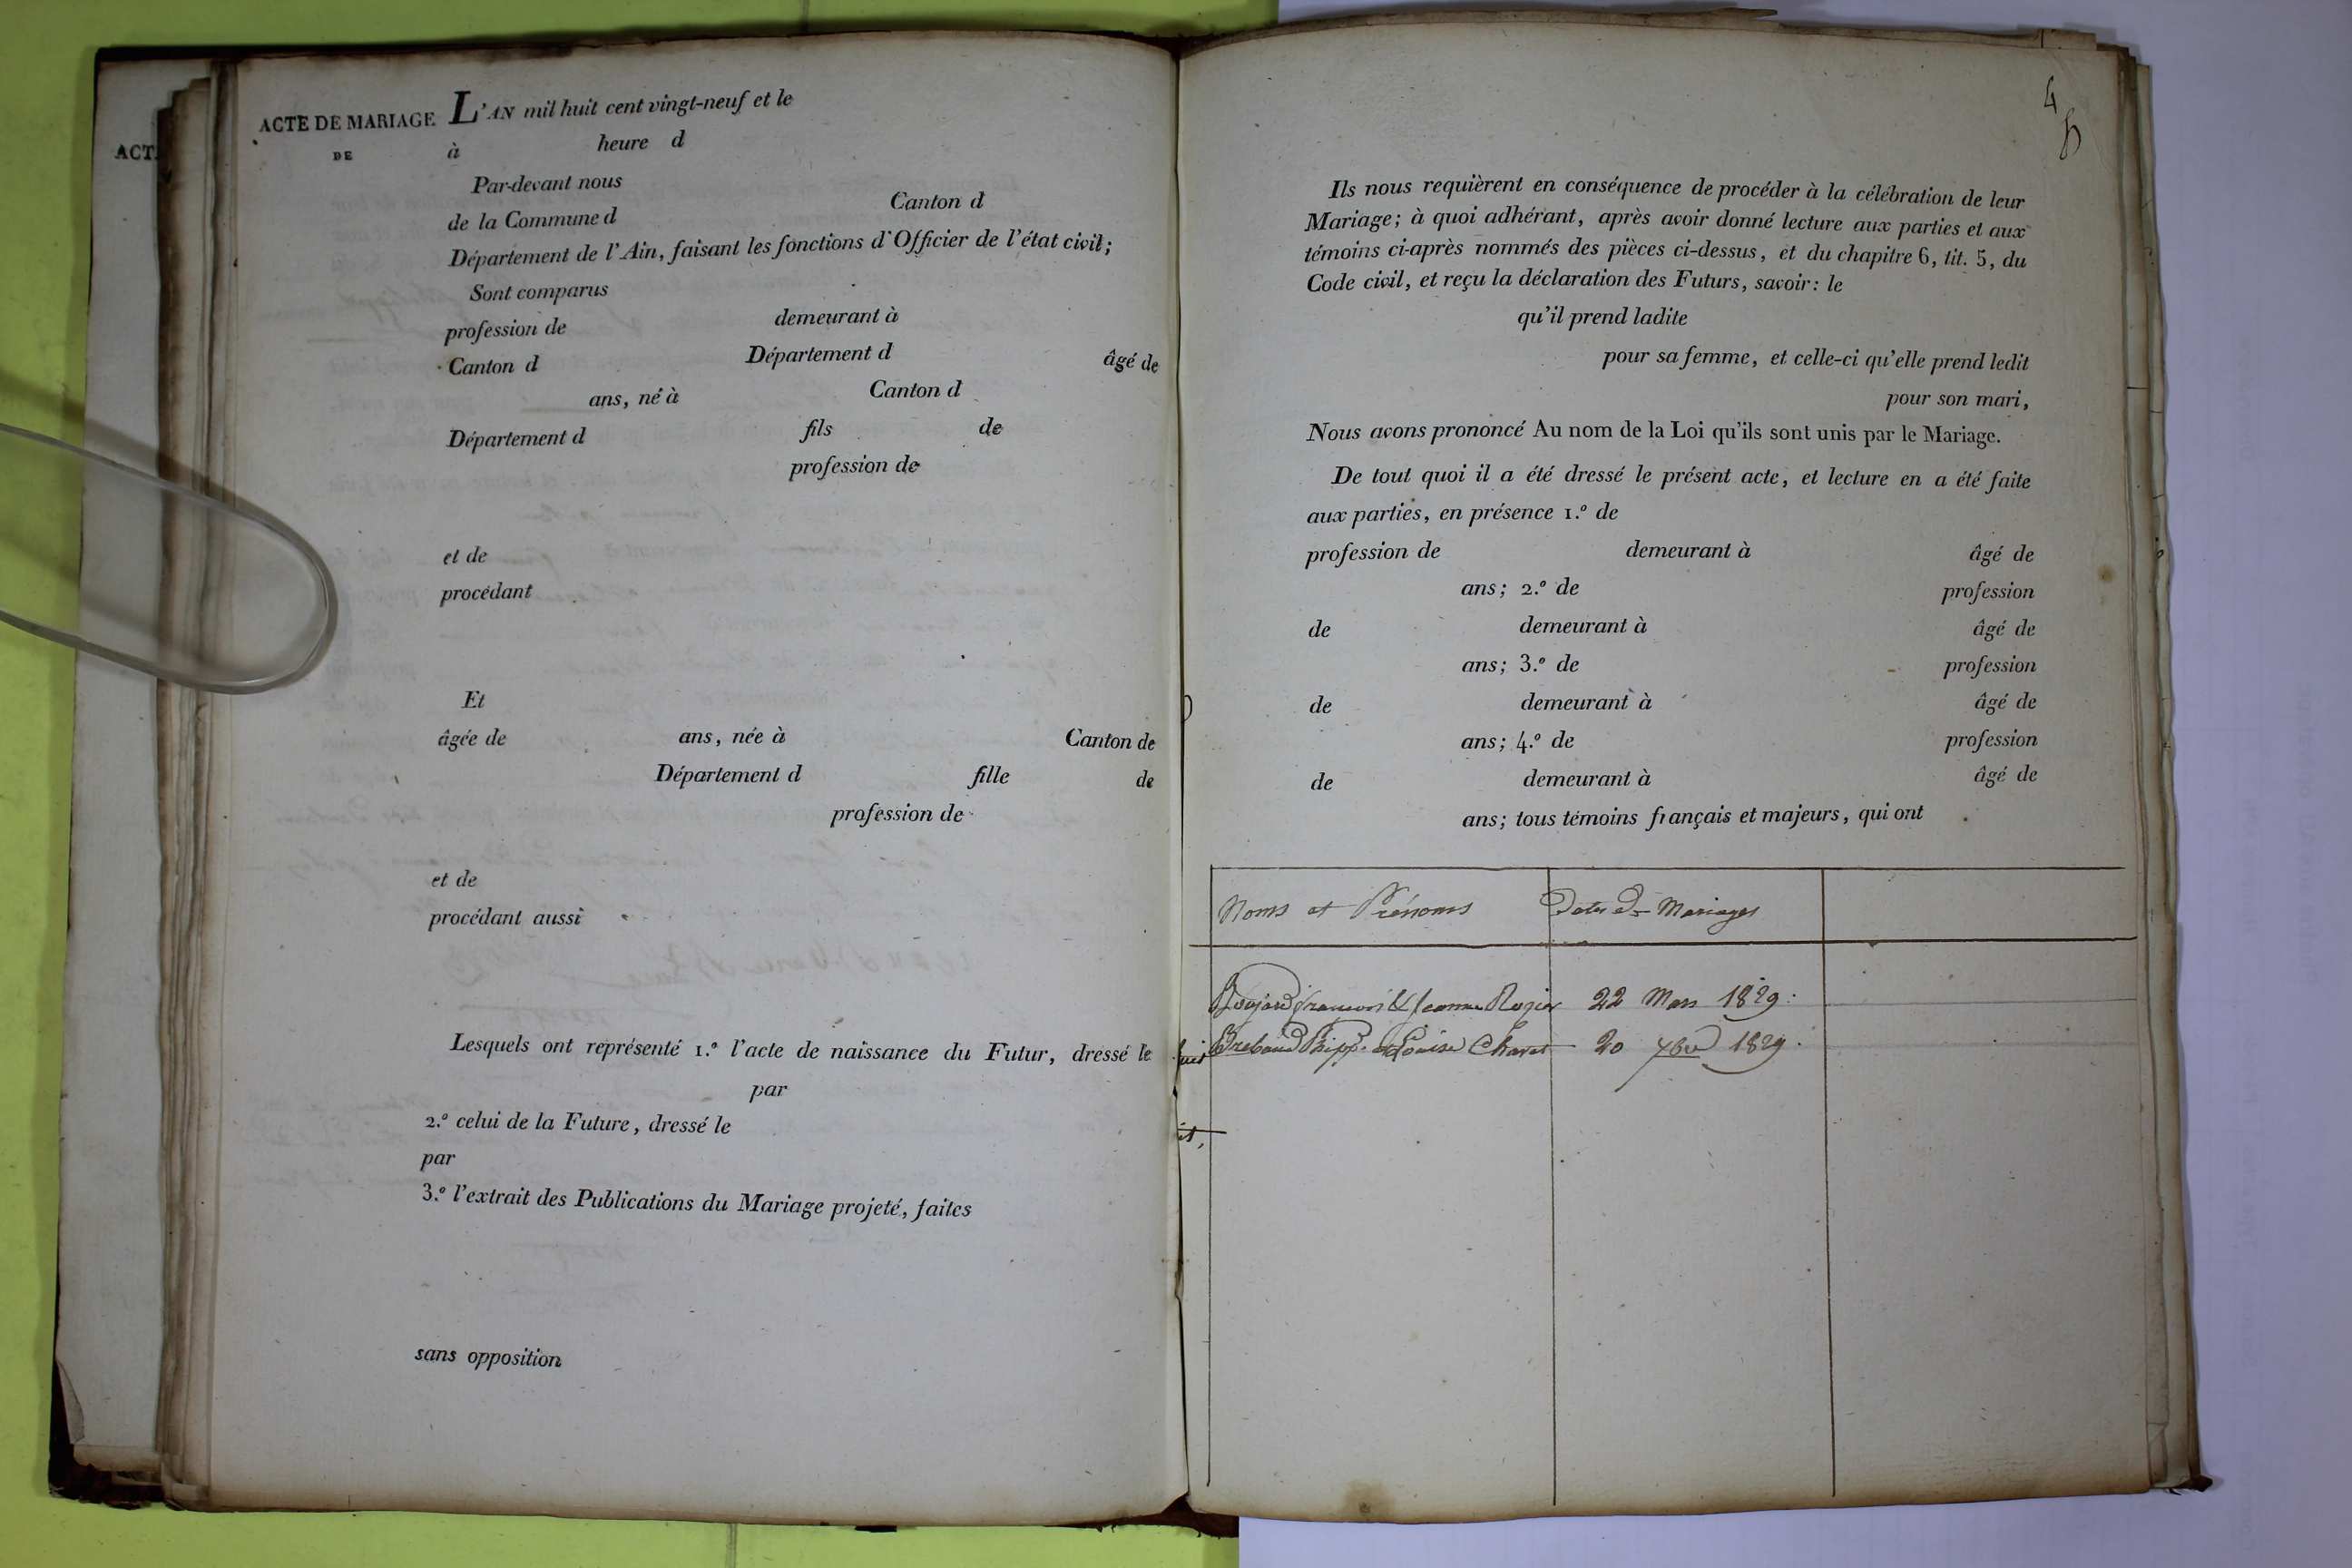 ACT
ACTE DE MARIAGE
DE
L'AN mil huit cent vingt-neuf et le
à heure d
Par-devant nous
de la Commune d Canton d
Département de l'Ain, faisant les fonctions d'Officier de l'état civil;
Sont comparus
profession de demeurant à
Canton d Département d âgé de
ans, né à Canton d
Département d fils de
profession de
et de
procédant
Et
âgée de ans, née à Canton de
Département d fille de
profession de
et de
procédant aussi
Lesquels ont représenté 1.º l'acte de naissance du Futur, dressé le
par
2.º celui de la Future, dressé le
par
3.º l'extrait des Publications du Mariage projeté, faites
sans opposition
4
Ils nous requièrent en conséquence de procéder à la célébration de leur
Mariage; à quoi adhérant, après avoir donné lecture aux parties et aux
témoins ci-après nommés des pièces ci-dessus, et du chapitre 6, tit. 5, du
Code civil, et reçu la déclaration des Futurs, savoir: le
qu'il prend ladite
pour sa femme, et celle-ci qu'elle prend ledit
pour son mari,
Nous avons prononcé Au nom de la Loi qu'ils sont unis par le Mariage.
De tout quoi il a été dressé le présent acte, et lecture en a été faite
aux parties, en présence 1.º de
profession de demeurant à âgé de
ans; 2.º de profession
de demeurant à âgé de
ans; 3.º de profession
de demeurant à âgé de
ans; 4.º de profession
de demeurant à âgé de
ans; tous témoins français et majeurs, qui ont
Noms et Prénoms Dates de Mariages
françois & Jeanne Rozier 22 Mars 1829.
Louise Chanel 20 7bre 1829.